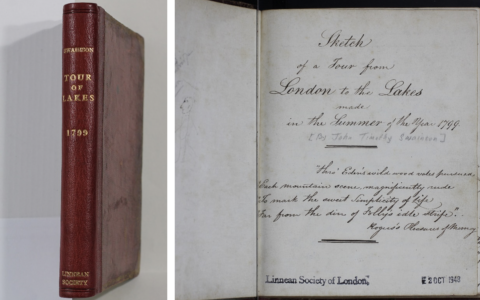 SWAINSON
TOUR
OF
LAKES
1799
LINNEAN
SOCIETY
Sketch
of a Tour from
London to the Lakes
made
in the Summer of the Year 1799
[By John Timothy Swainson]
"Thro' Eden's wild wood vales pursued,
"Each mountain scene magnificently rude
"To mark the sweet simplicity of life
"Far from the din of Folly's idle strife".
Rogers's Pleasures of Memory
Linnean Society of London.
2 OCT 1948